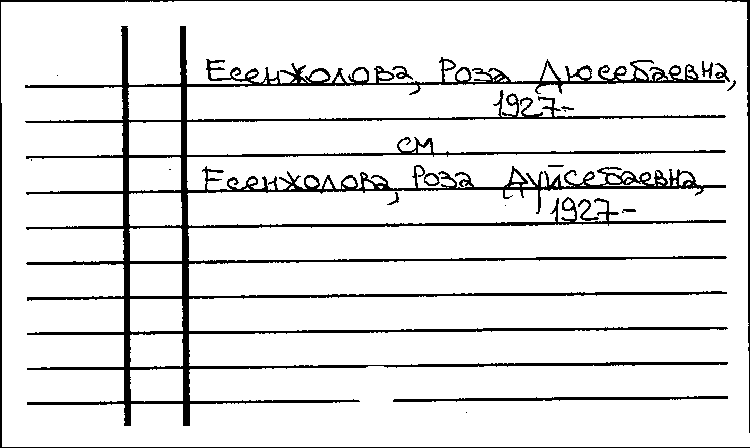 Есенжолова, Роза Дюсебаевна,
1927-
см.
Есенжолова, Роза Дуйсебаевна,
1927-